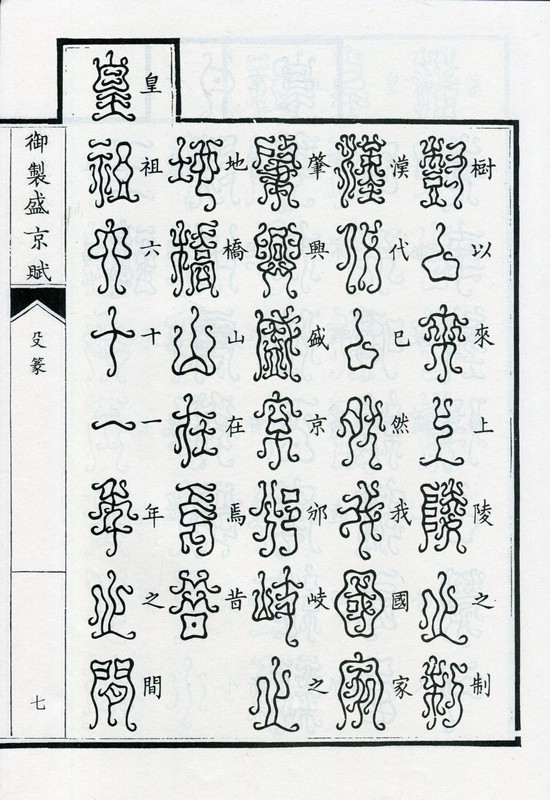 樹以來上陵之制
漢代已然我國家
肇興盛京邠岐之
地橋山在焉昔
皇祖六十一年之間
御製盛京賦
殳篆
七